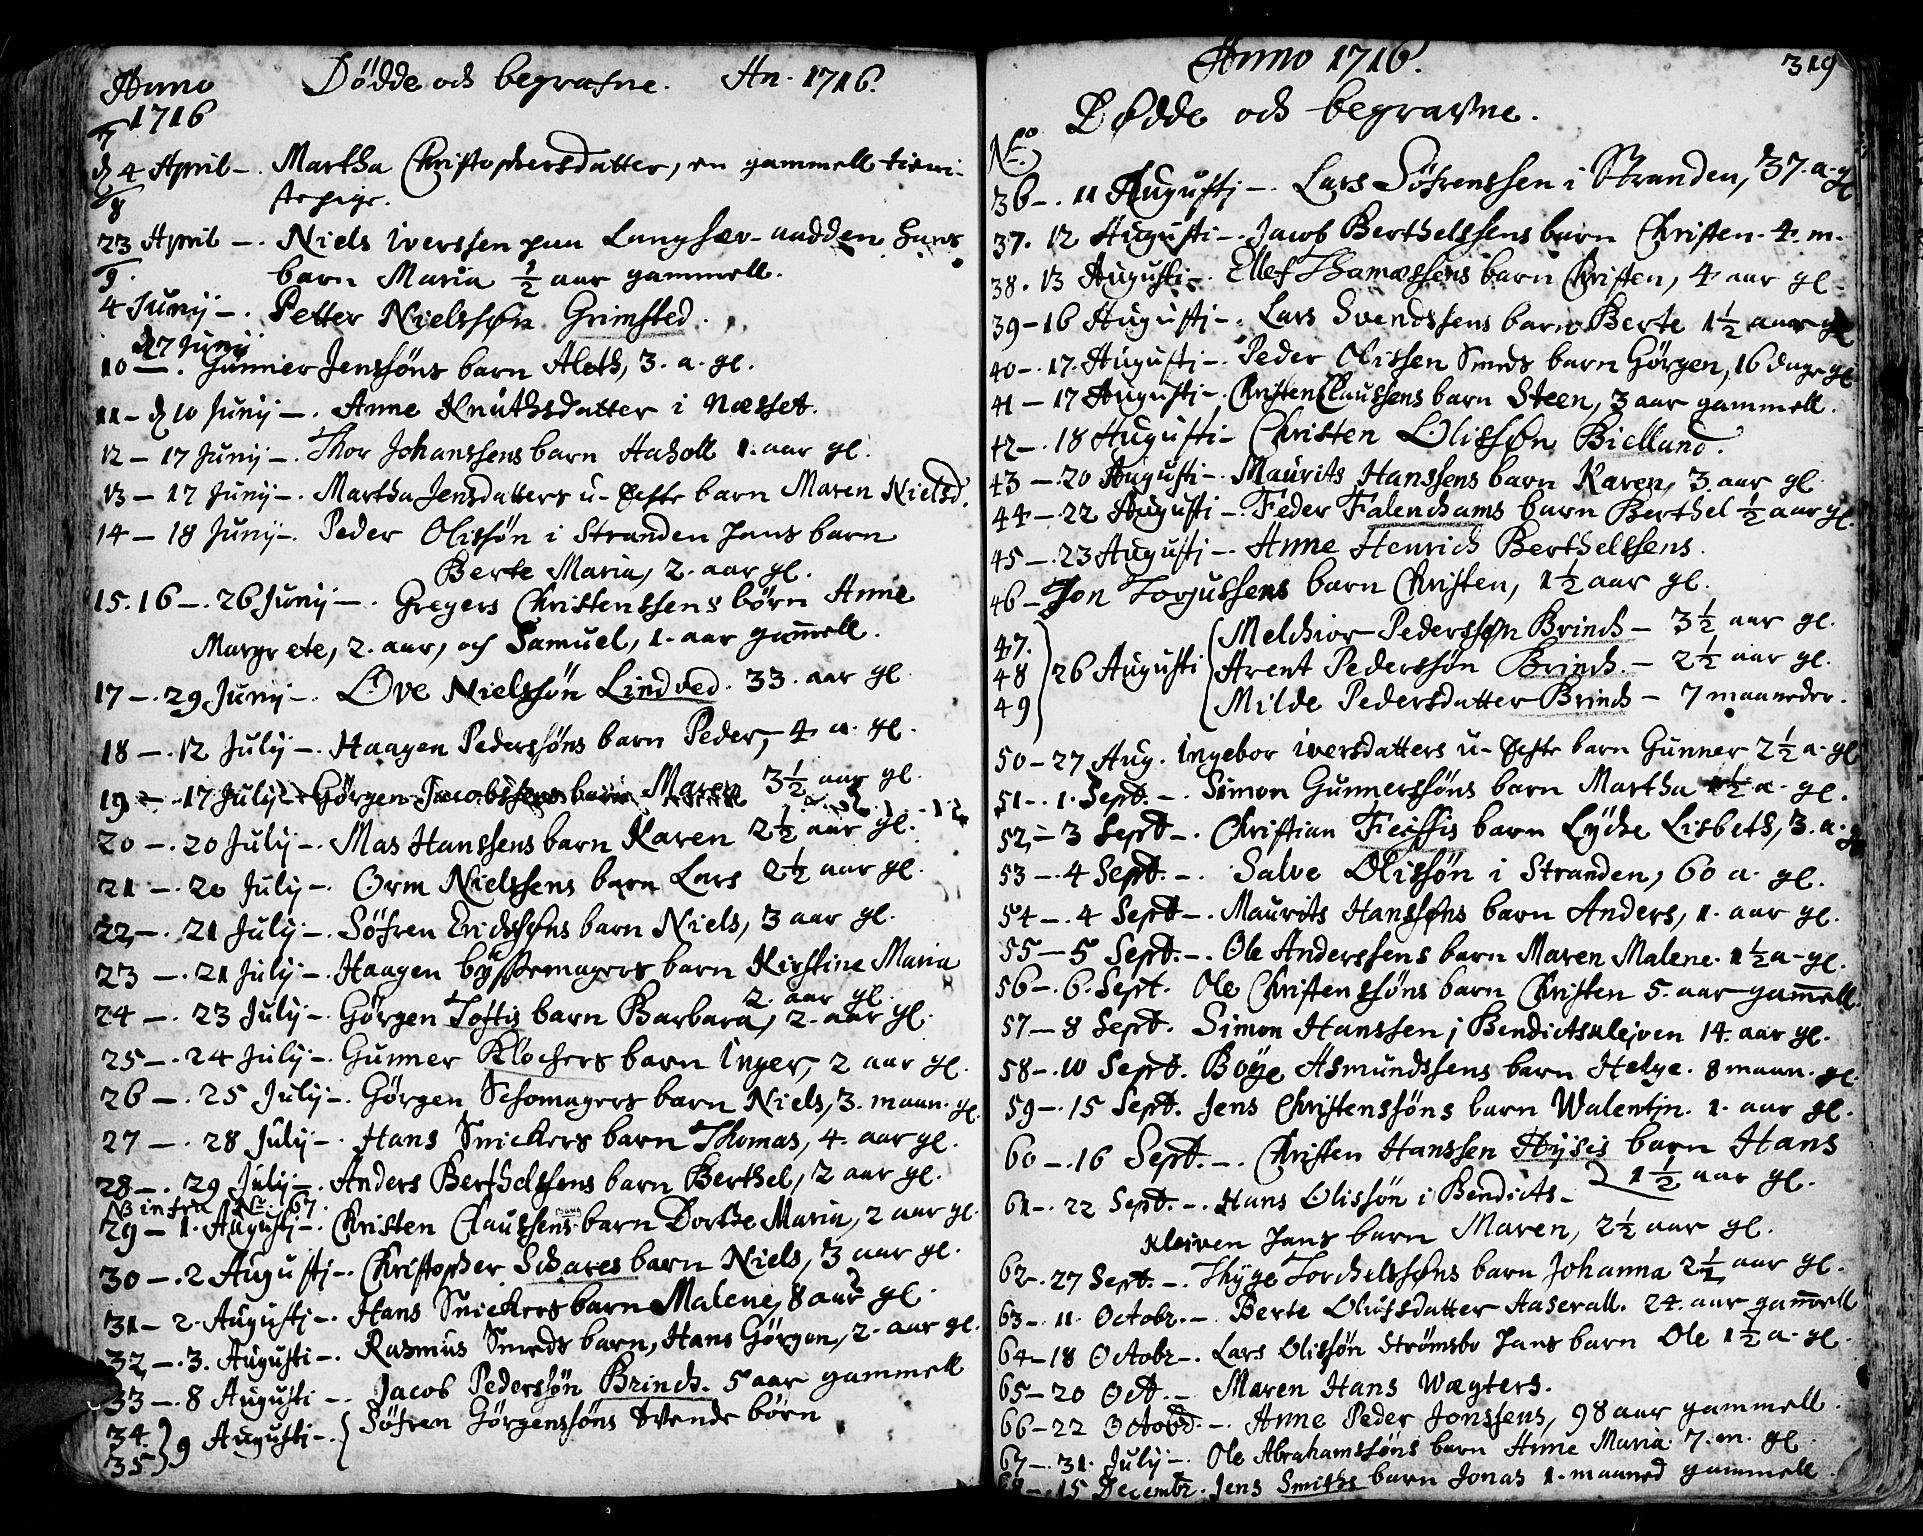 Anno Dödde och begrafne. An. 1716.
1716
7
d 4 April –. Martha Christophersdatter, en gammell tieni-
8 stepige.
23 April –. Niels Iverssen paa Langsæv-aadden hans
9. barn Maria ½ aar gammell.
4 Junij –. Petter Nielssøn Grimsted.
d 7 Junij
10 –. Gunner Jenssöns barn Aleth, 3. a. gl.
11 – d 10 Junij –. Anne Knuthsdatter i Næsset.
12 – 17 Junij –. Thor Johanssens barn 1. aar gl.
13 – 17 Junij –. Martha Jensdatters u-echte barn Maren Nielsd.
14 – 18 Junij –. Peder Olissön i Stranden hans barn
Berte Maria, 2. aar gl.
15. 16 –. 26 Junij –. Gregers Christenssens börn Anne
Margrete, 2. aar, och Samuel, 1. aar gamell.
17 –. 29 Junij –. Ove Nielssön Lindved. 33. aar gl.
18 –. 12 Julij –. Haagen Pederssöns barn Peder, 4 a. gl.
19 –. 17 Julij –. Görgen Jacobssens barn Maren 3½ aar gl.
20 –. 20 Julij –. Mas Hanssens barn Karen 2½ aar gl.
21 –. 20 Julij –. Orm Nielssens barn Lars 2½ aar gl.
22 –. 21 Julij –. Söfren Erichssøns barn Niels, 3 aar gl.
23 –. 21 Julij –. Haagen byssemagers barn Kirstine Maria
2. aar gl.
24 –. 23 Julij –. Görgen Toftis barn Barbara, 2. aar gl.
25 –. 24 Julij –. Gunner Klochers barn Inger, 2 aar gl.
26 –. 25 Julij –. Görgen Schomagers barn Niels, 3. maan. gl.
27 –. 28 Julij –. Hans Snickers barn Thomas, 4. aar gl.
28 –. 29 Julij –. Anders Berthelssens barn Berthel, 2 aar gl.
NB infra No. 67.
29 – 1. Augustj –. Christen Claussens barn Dorthe Maria, 2 aar gl.
30 –. 2 Augustj –. Christopher Schares barn Niels, 3 aar gl.
31 – 2. Augustj –. Hans Snickers barn Malene, 8 aar gl.
32 –. 3. Augusti –. Rasmus Smeds barn, Hans Görgen, 2. aar gl.
33 –. 8 Augusti –. Jacob Pederssön Brinch. 5 aar gammell
34. } 9 Augusti –. { Söfren Görgenssöns tvende börn
35
Anno 1716. 319
Dødde och begrafne.
No.
36 –. 11 Augustj –. Lars Söfrenssen i Stranden, 37. a. gl
37. 12 Augusti –. Jacob Berthelssens barn Christen. 4. m.
38. 13 Augusti –. Ellef Thamessens barn Christen, 4 aar gl.
39 – 16 Augustj –. Lars Svendssens barn Berte 1½ aar gl
40 –. 17. Augustj –. Peder Olissen Smeds barn Görgen, 16 dage gl
41 – 17 Augustj –. Christen Claussens barn Steen, 3 aar gammell.
42 –. 18 Augusti – Christen Olissøn Bielland.
43 –. 20 Augusti –. Maurits Hanssens barn Karen, 3. aar gl.
44 –. 22 Augusti –. Feder Falenchams barn Berthel ½ aar gl.
45 –. 23 Augustj –. Anne Henrich Berthelssens.
46 – Jon Torjussens barn Christen, 1½ aar gl.
47. { Melchior Pederssøn Brinch – 3½ aar gl.
48 } 26 Augusti { Arent Pederssøn Brinch. – 2½ aar gl.
49 { Milde Pedersdatter Brinch – 7 maaneder.
50 – 27 Aug. Ingebor Iversdatters u-echte barn Gunner 2½ a. gl
51 –. 1. Sept. –. Simon Gunnerssöns barn Martha 1½ a. gl.
52 – 3 Sept –. Christian Feiffis barn Lyche Lisbeth, 3. a. gl
53 –. 4 Sept. –. Salve Olissön i Stranden, 60 a. gl.
54 –. 4 Sept –. Maurits Hanssøns barn Anders, 1. aar gl.
55 – 5 Sept. –. Ole Anderssens barn Maren Malene. 1½ a. gl.
56 –. 6. Sept. Ole Christenssöns barn Christen 5. aar gamell.
57 – 8 Sept. Simon Hanssen j Bendictsklejven 14. aar gl.
58 –. 10 Sept. Boye Asmundssens barn Helge. 8 maan. gl.
59 –. 15 Sept. Jens Christenssöns barn Walentin. 1. aar gl.
60 –. 16 Sept. –. Christen Hanssen Hysis barn Hans
1½ aar gl.
61 –. 22 Sept. –. Hans Olissön i Bendicts-
kleiven hans barn Maren, 2½ aar gl.
62 –. 27 Sept. –. Thyge Torchelssøns barn Johanna 2½ aar gl.
63 –. 11. Octobr. –. Berte Olufsdatter Haserall. 24. aar gamell
64 – 18 Octobr –. Lars Olissön Strömsbo hans barn Ole 1½ a. gl.
65 – 20 Oct. – Maren Hans Wægters.
66 – 22 Octobr. –. Anne Peder Jonssens, 98 aar gammell.
67 –. 31. Julij –. Ole Abrahamssöns barn Anne Maria. 7. m. gl.
68 –. 15 Decembr. Jens Smiths barn Jonas 1. maaned gammell.